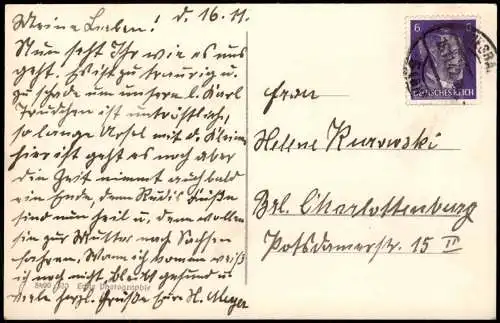 Meine Lieben! d. 16.11.
Nun seht Ihr wie es uns
geht. Es ist zu traurig u.
zu schade um unsern l. Karl
Trudchen ist untröstlich,
so lange Ursel mit d. Kleinen
hier ist geht es noch aber
die Zeit nimmt auch bald
ein Ende, denn Rudis Füße
sind nun heil u. dann wollen
sie zur Mutter nach Sachsen
fahren. Wann ich komme weiß
ich noch nicht, bleibt gesund u
viele herzl. Grüße Eure H. Meyer
Echte Photographie
6 6
DEUTSCHES REICH
Frau
Helene Kurowski
Brl. Charlottenburg
Potsdamerstr. 15 II